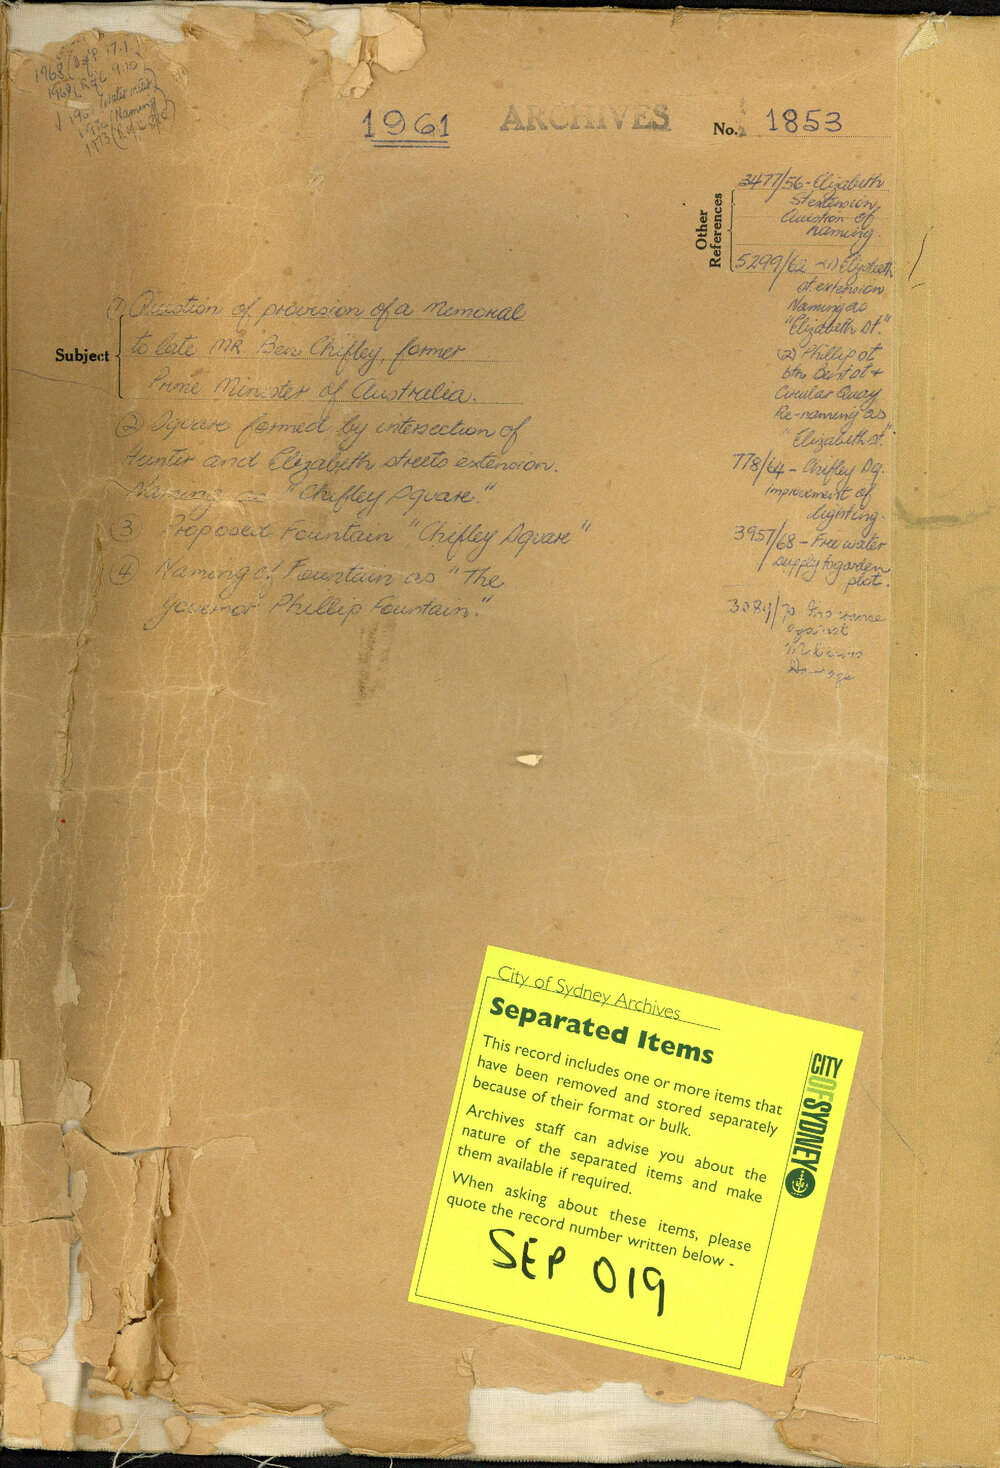 1968 (D/P 17.1
1968/ R&C 9.10
1967 (Water meter)
1970 (Naming)
1973 (R&C
1961
ARCHIVES
No. 1853
Other
References
3477/56 - Elizabeth
St extension,
Question of
naming.
5299/62 - (1) Elizabeth
st extension
Naming as
"Elizabeth St."
(2) Phillip st
btn Bent st +
Circular Quay
Re-naming as
"Elizabeth st."
778/64 - Chifley Sq.
improvement of
lighting.
3957/68 - Free water
supply to garden
plot.
3084/70 Insurance
against
Malicious
Damage
Subject
(1) Question of provision of a Memorial
to late MR Ben Chifley, former
Prime Minister of Australia.
(2) Square formed by intersection of
Hunter and Elizabeth streets extension.
Naming as "Chifley Square."
(3) Proposed Fountain "Chifley Square"
(4) Naming of Fountain as "The
Governor Phillip Fountain."
City of Sydney Archives
Separated Items
This record includes one or more items that
have been removed and stored separately
because of their format or bulk.
Archives staff can advise you about the
nature of the separated items and make
them available if required.
When asking about these items, please
quote the record number written below -
SEP 019
CITY OF SYDNEY